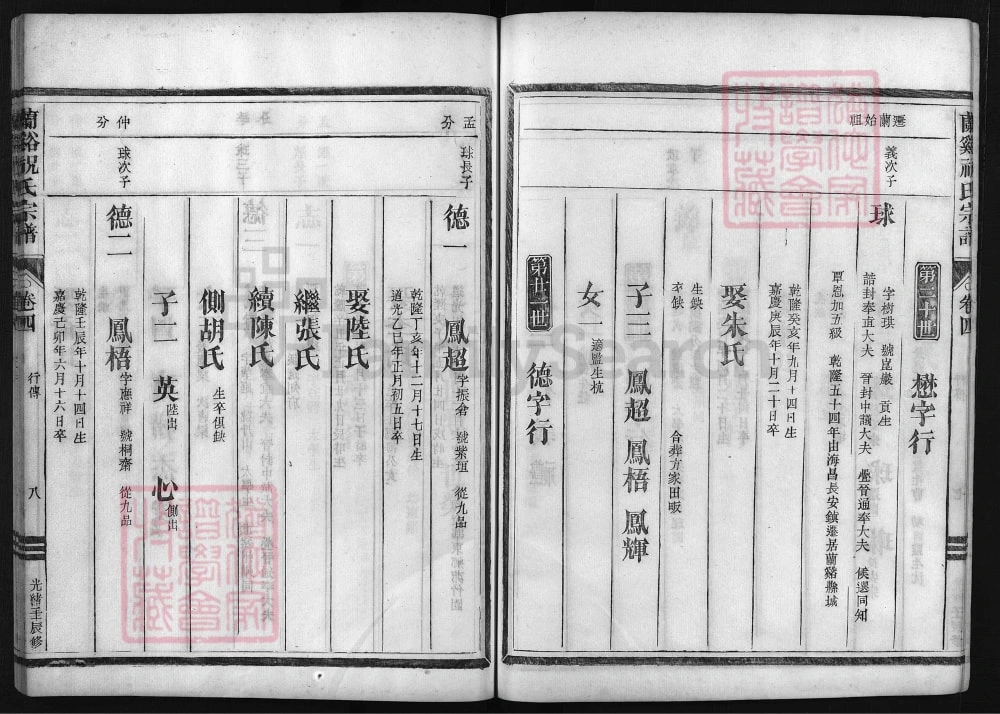 蘭谿祝氏宗譜
卷四
第二十世
懋字行
遷蘭始祖
義次子
球
字樹琪 號崑巖 貢生
誥封奉直大夫 晉封中議大夫 疊晉通奉大夫 候選同知
覃恩加五級 乾隆五十四年由海昌長安鎮遷居蘭谿縣城
乾隆癸亥年九月十四日生
嘉慶庚辰年十月二十日卒
娶朱氏
生缺
卒缺
合葬方家田畈
子三 鳳超 鳳梧 鳳輝
女一
適監生杭
第廿一世
德字行
孟分
球長子
德一 鳳超
字振倉 號紫垣 從九品
乾隆丁亥年十二月十七日生
道光乙巳年正月初五日卒
娶陸氏
繼張氏
續陳氏
側胡氏
生卒俱缺
子二 英 陸出 心 側出
仲分
球次子
德二 鳳梧
字應祥 號桐齋 從九品
乾隆壬辰年十月十四日生
嘉慶己卯年六月十六日卒
蘭谿祝氏宗譜
卷四
行傳
八
光緒壬辰修